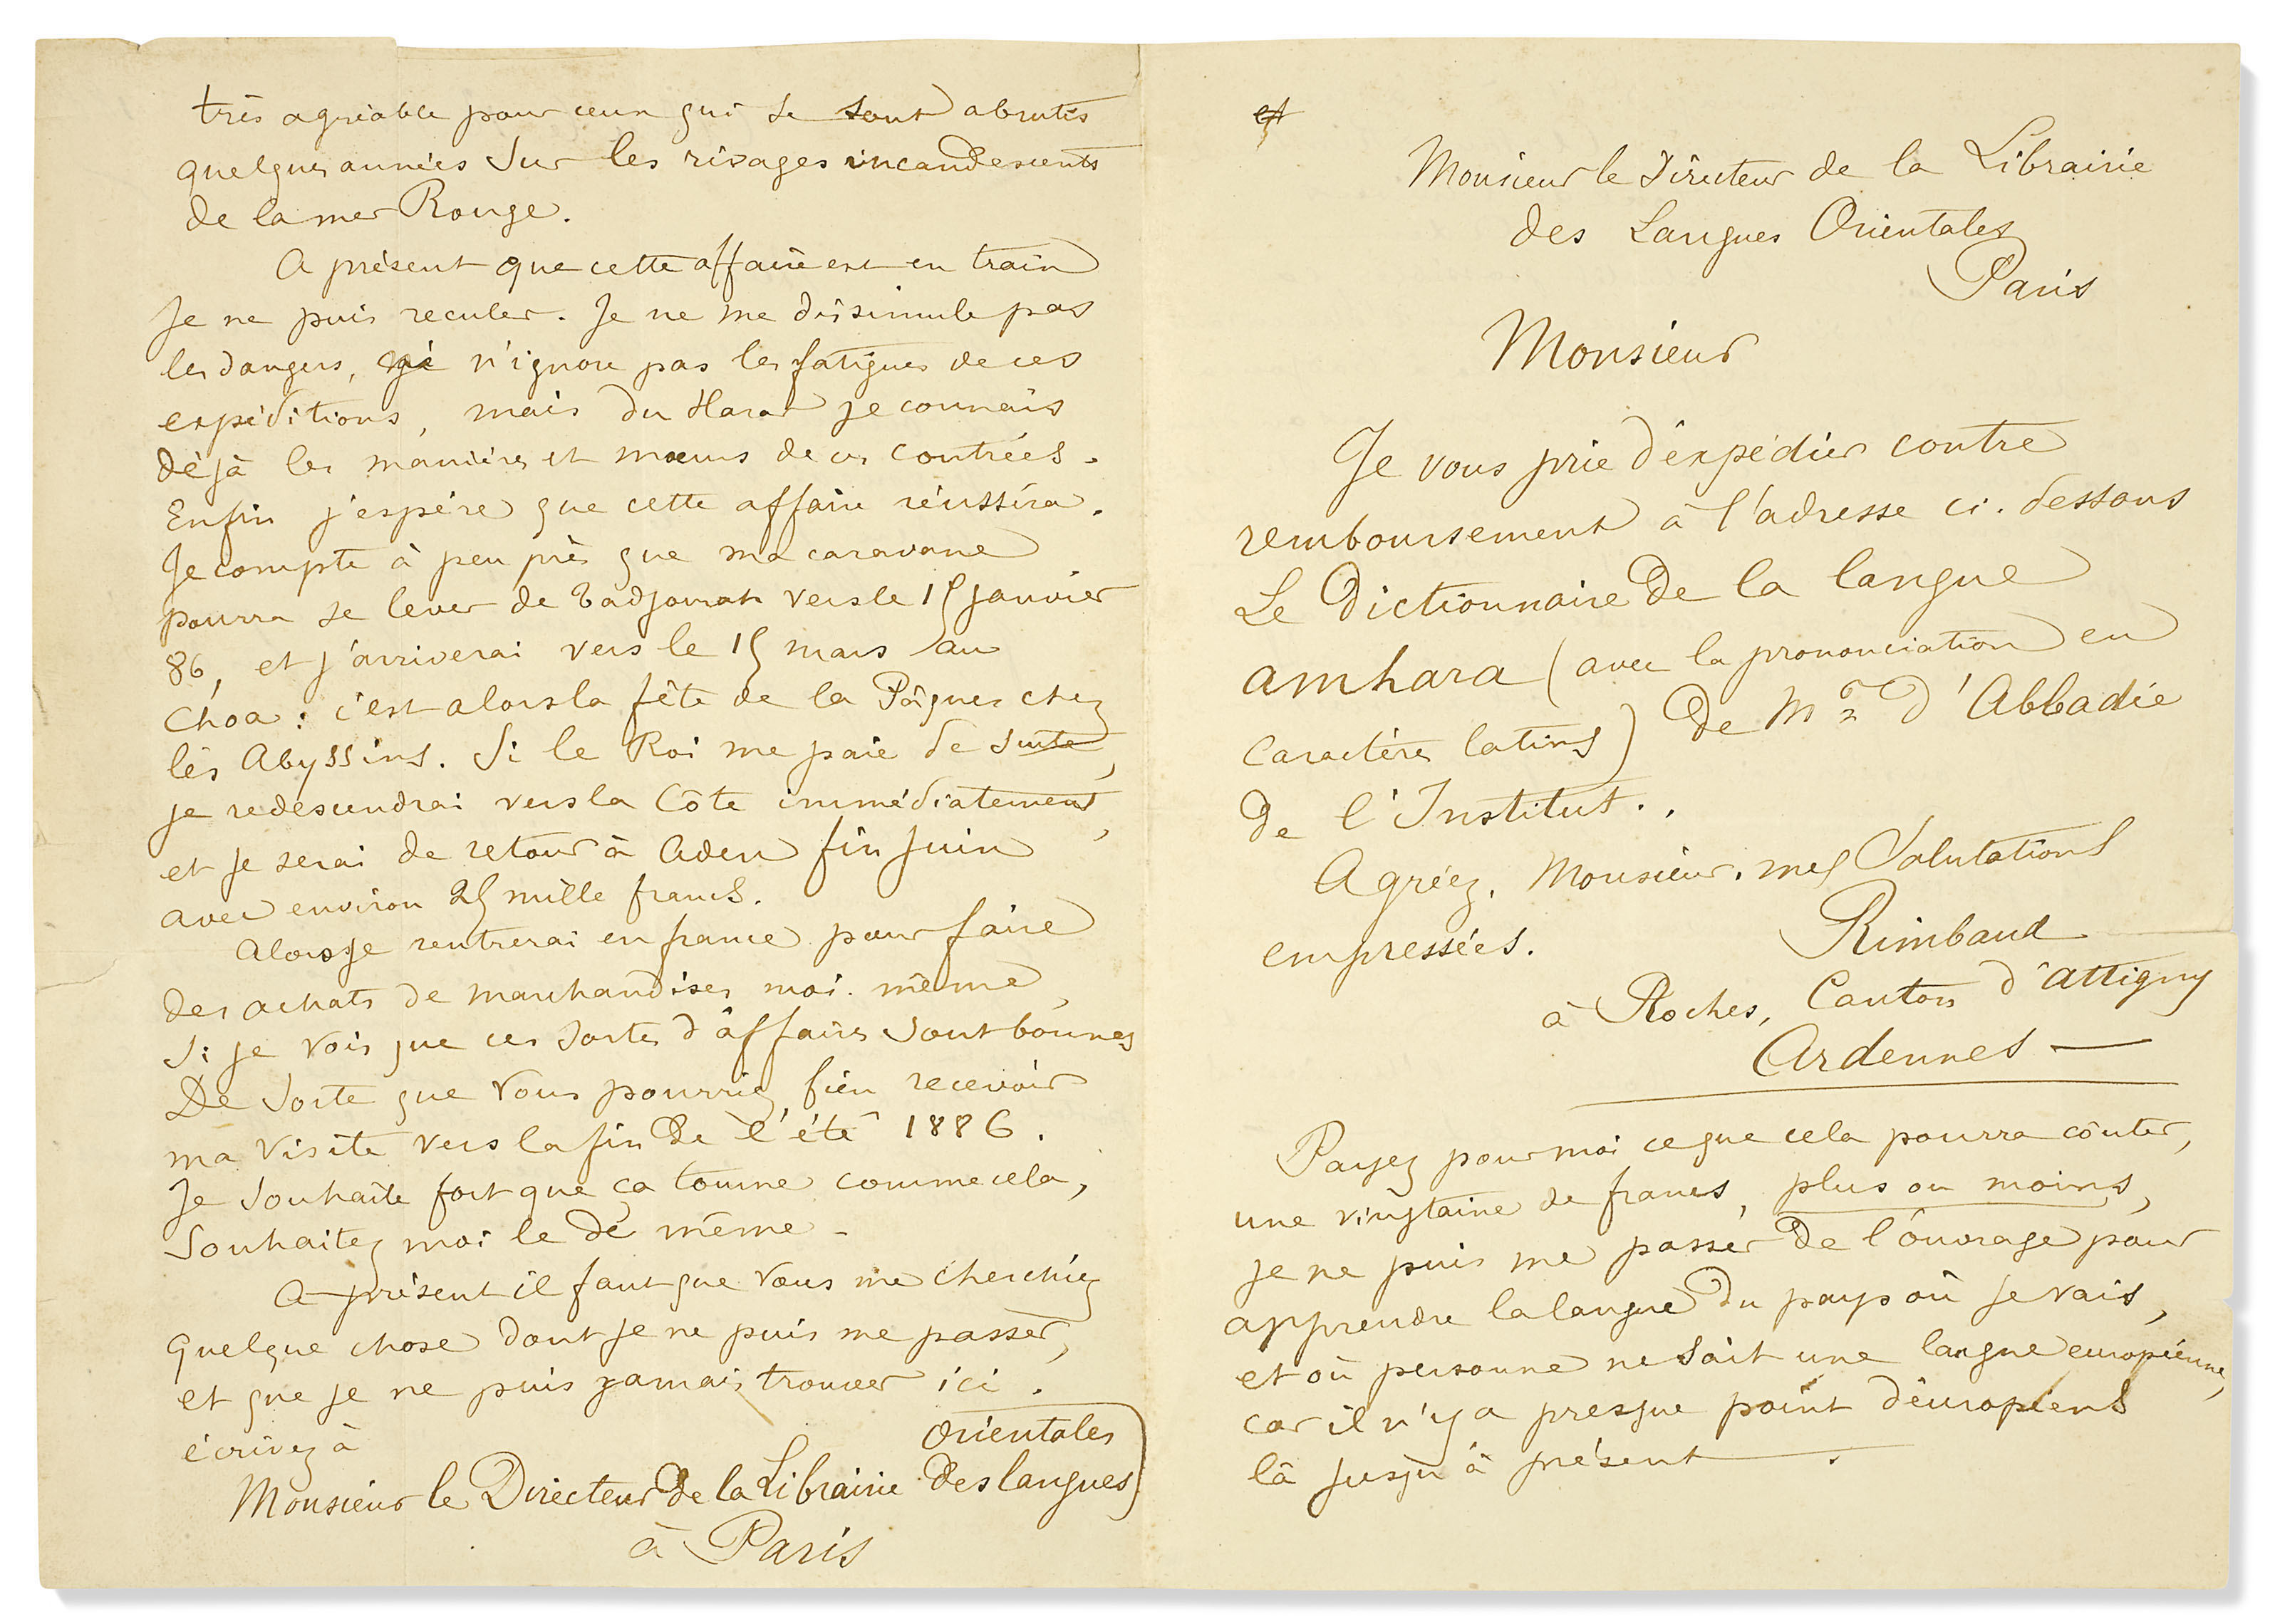 très agréable pour ceux qui se sont abrutis
quelques années sur les rivages incandescents
de la mer Rouge.
A présent que cette affaire est en train
je ne puis reculer. Je ne me dissimule pas
les dangers, je n'ignore pas les fatigues de ces
expéditions, mais du Harar je connais
déjà les manières et mœurs de ces contrées.
Enfin j'espère que cette affaire réussira.
Je compte à peu près que ma caravane
pourra se lever de Tadjourah vers le 15 janvier
86, et j'arriverai vers le 15 mars au
Choa : c'est alors la fête de la Pâques chez
les Abyssins. Si le Roi me paie de suite,
je redescendrai vers la Côte immédiatement,
et je serai de retour à Aden fin juin
avec environ 25 mille francs.
Alors je rentrerai en france pour faire
des achats de marchandises moi-même,
Si je vois que ces sortes d'affaires sont bonnes
De sorte que vous pourriez bien recevoir
ma visite vers la fin de l'été 1886.
Je souhaite fort que ça tourne comme cela,
Souhaitez moi le de même -
A présent il faut que vous me cherchiez
quelque chose dont je ne puis me passer,
et que je ne puis jamais trouver ici.
écrivez à
orientales
Monsieur le Directeur de la Librairie des langues
à Paris
et
Monsieur le Directeur de la Librairie
des Langues Orientales
Paris
Monsieur
Je vous prie d'expédier contre
remboursement à l'adresse ci-dessous
Le Dictionnaire de la langue
amhara (avec la prononciation en
caractères latins) de Mr d'Abbadie
de l'Institut.
Agréez, Monsieur, mes Salutations
empressées.
Rimbaud
à Roches, Canton d'Attigny
Ardennes —
Payez pour moi ce que cela pourra coûter,
une vingtaine de francs, plus ou moins,
je ne puis me passer de l'ouvrage pour
apprendre la langue du pays où je vais,
et où personne ne sait une langue européenne,
car il n'y a presque point d'européens
là jusqu'à présent.